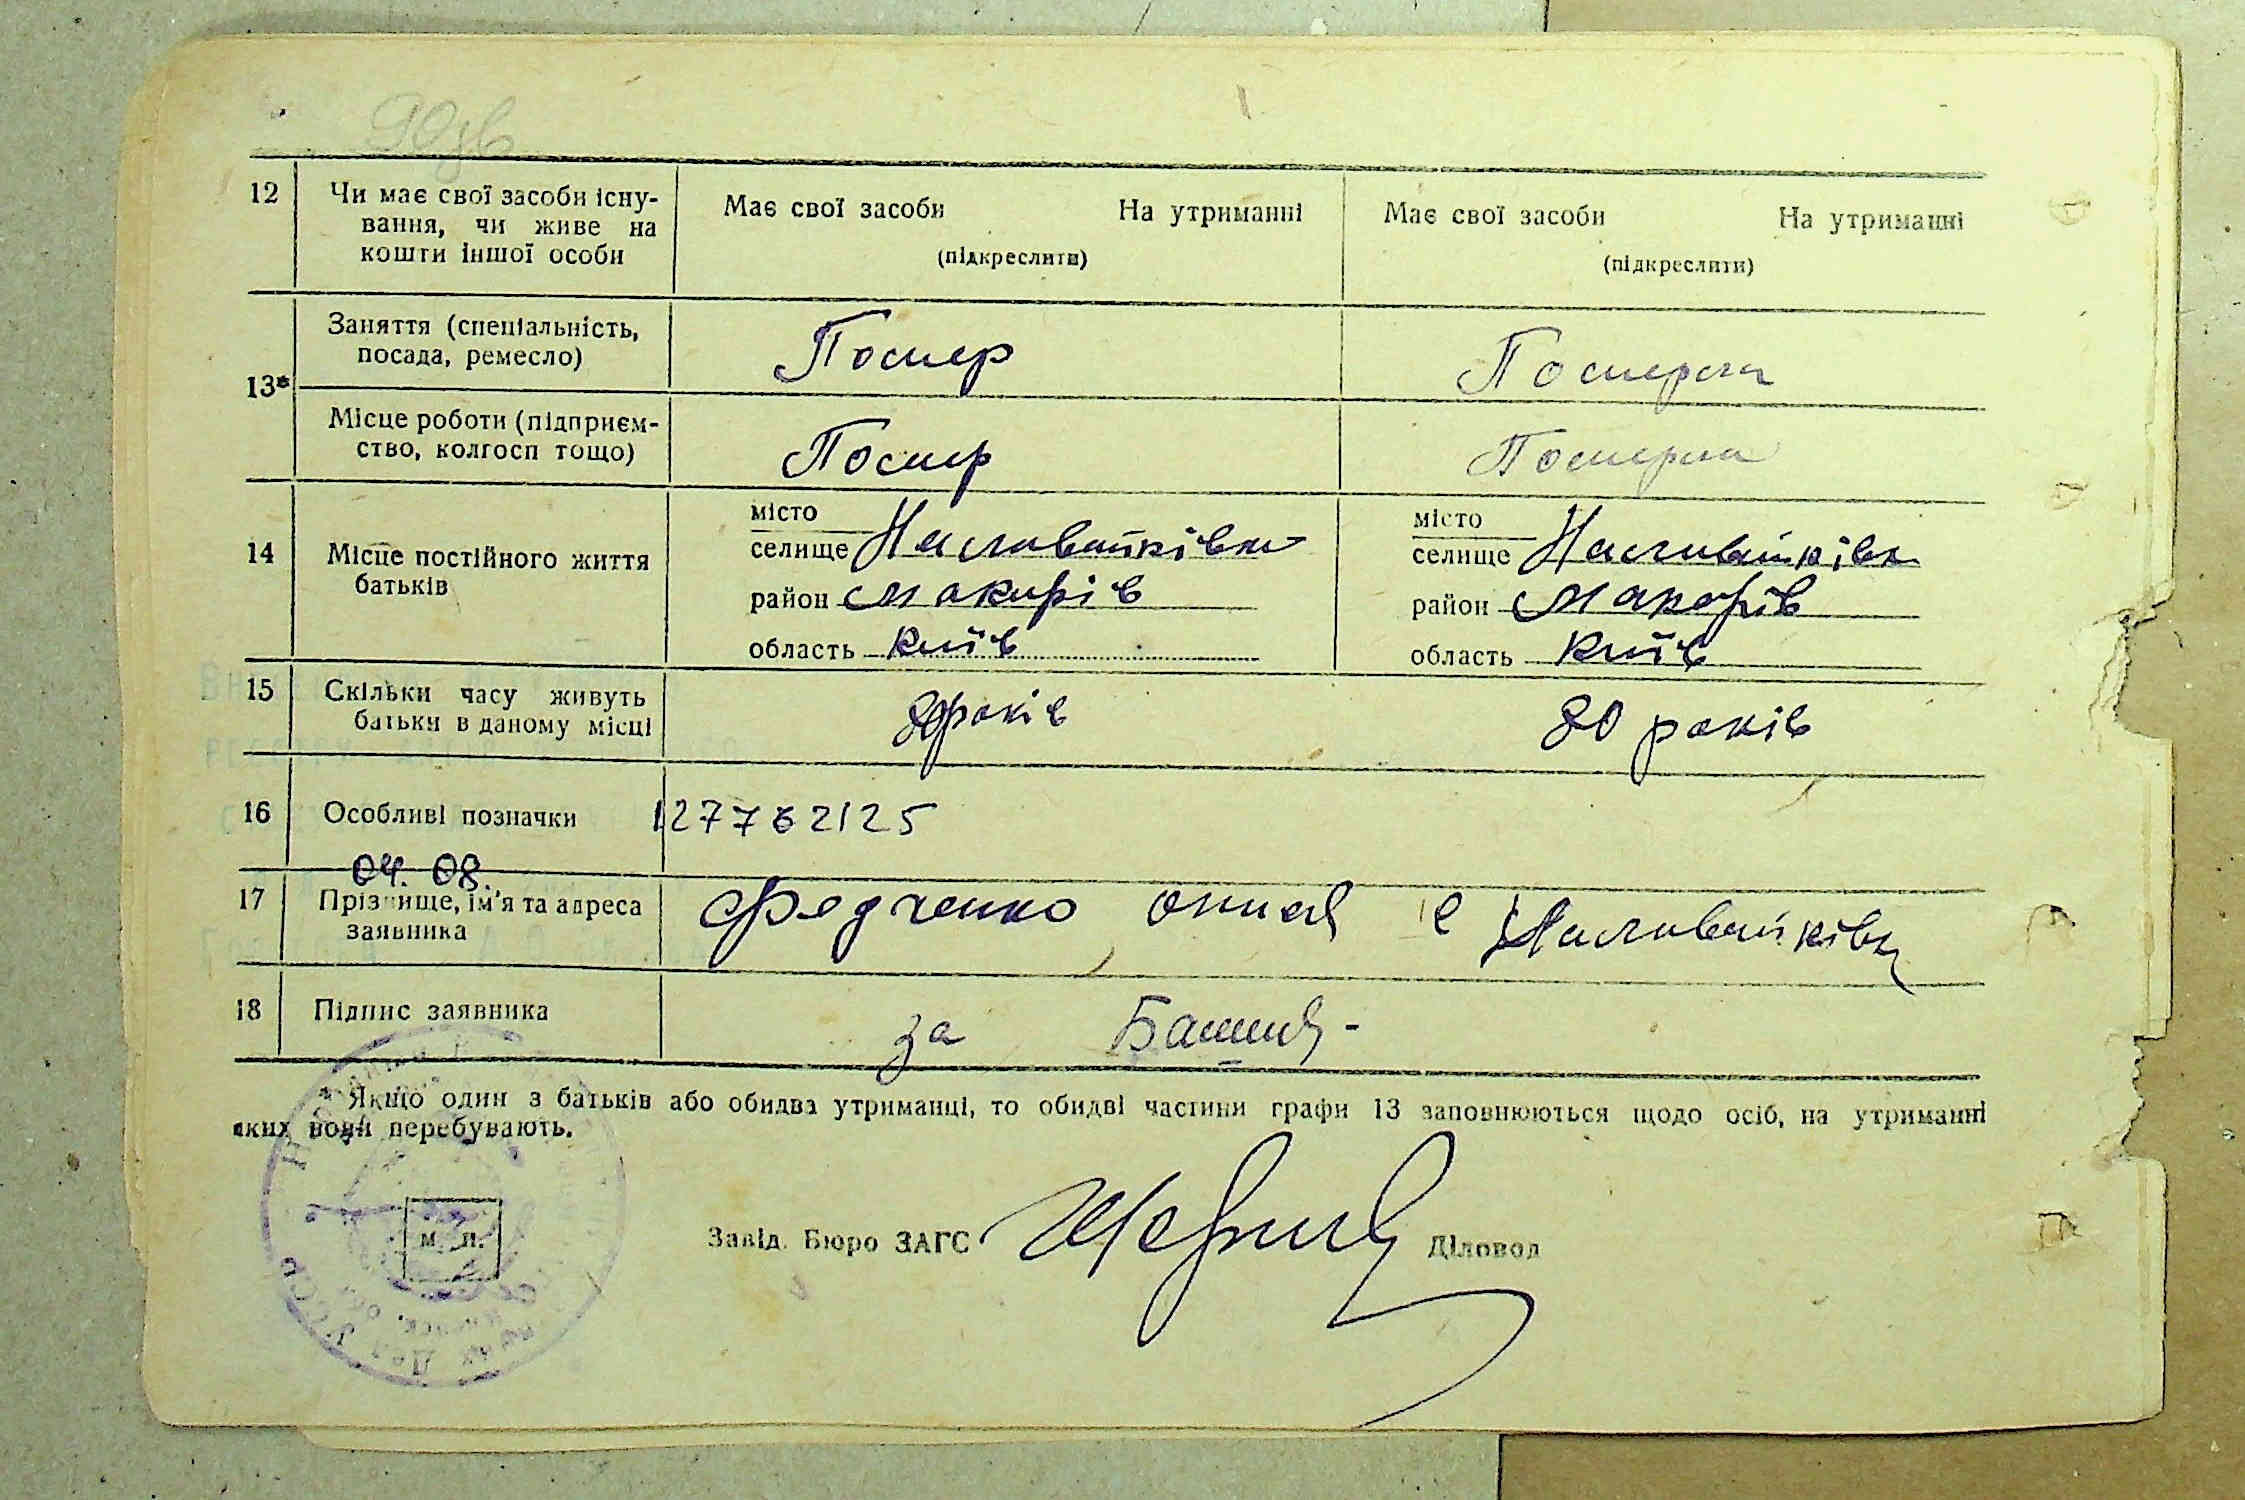 12 Чи має свої засоби існу- Має свої засоби На утриманні Має свої засоби На утриманні
вання, чи живе на
кошти іншої особи (підкреслити) (підкреслити)
Заняття (спеціальність,
посада, ремесло) Помер Померла
13*
Місце роботи (підприєм-
ство, колгосп тощо) Помер Померла
місто місто
14 Місце постійного життя селище Наливайківка селище Наливайківка
батьків район Макарів район Макарів
область Київ область Київ
15 Скільки часу живуть
батьки в даному місці 20 років 20 років
16 Особливі позначки 127762125
04. 08.
17 Прізвище, ім'я та адреса Федченко с Наливайківка
заявника
18 Підпис заявника за
* Якщо один з батьків або обидва утриманці, то обидві частини графи 13 заповнюються щодо осіб, на утриманні
яких вони перебувають.
м. п.
Завід. Бюро ЗАГС Діловод